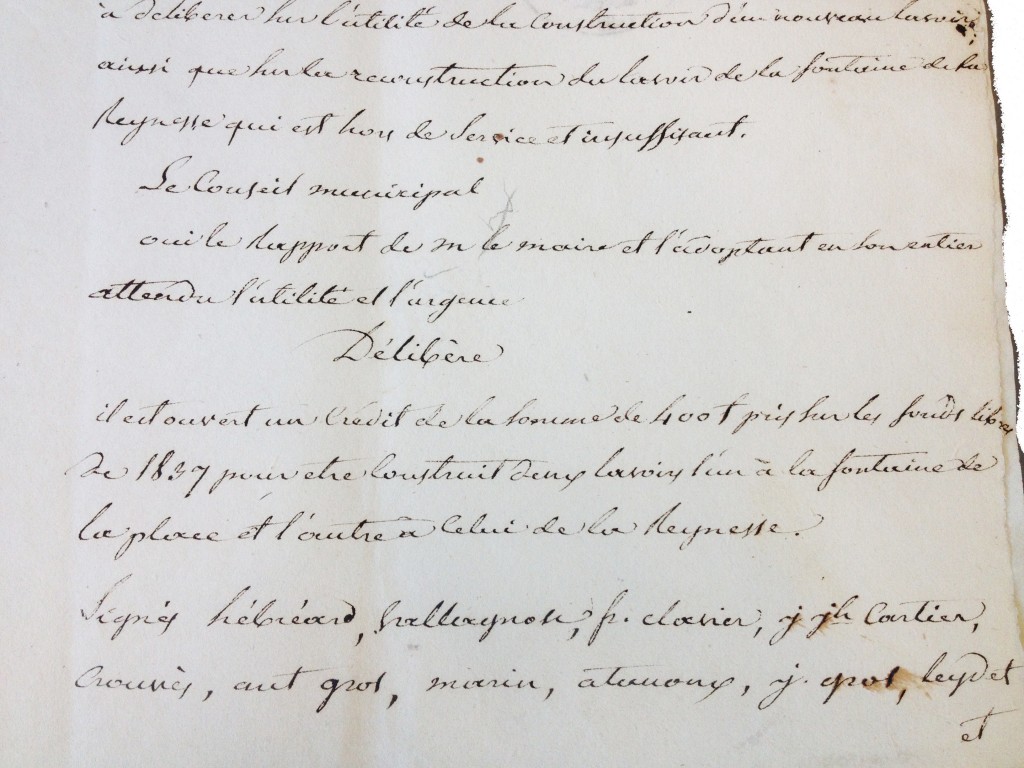 à délibérer sur l'utilité de la Construction d'un nouveau lavoir,
ainsi que sur la reconstruction du lavoir de la fontaine de la
Reynesse qui est hors de Service et insuffisant.
Le Conseil municipal
oui le Rapport de m le maire et l'adoptant en son entier
attendu l'utilité et l'urgence
Délibère
il est ouvert un Crédit de la somme de 400 f pris sur les fonds libres
de 1837 pour etre Construit deux lavoirs l'un à la fontaine de
la place et l'autre à Celui de la Reynesse.
Signés hébréard, fr. clavier, j jh Cartier,
Crouvès, ant gros, marin, j. gros, leydet
et